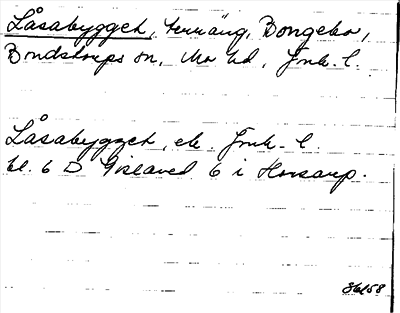 Låsabygget, terräng, Bongebo,
Bondstorps sn, Mo hd, Jönk. l.
Låsabygget, ek. Jönk. l.
bl. 6 D Gislaved 6 i Horsarp.